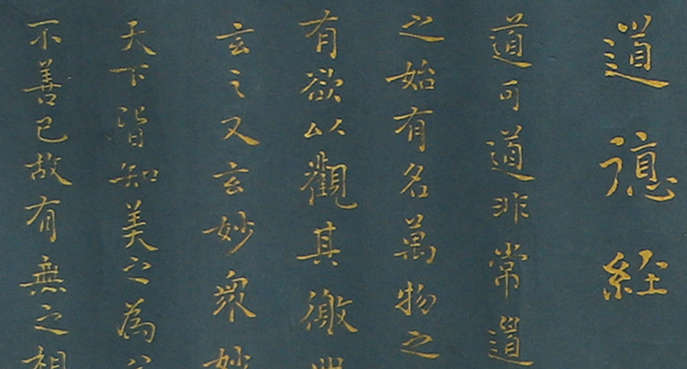 道德経
道可道非常道
之始有名萬物之
有欲以觀其徼
玄之又玄妙衆妙
天下皆知美之為
不善已故有無之相